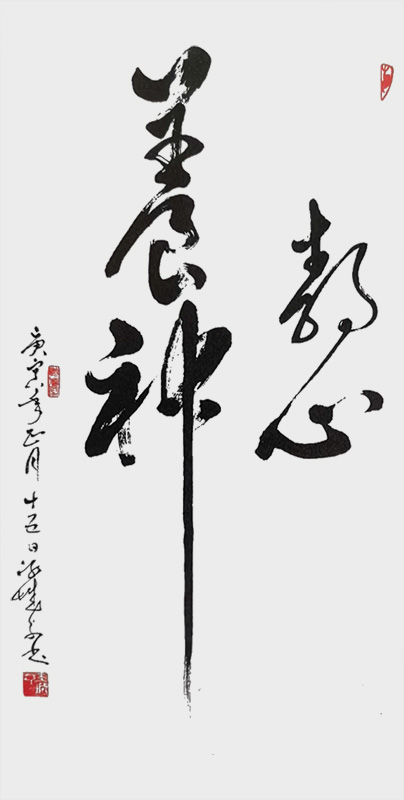 静心
养神
庚寅年正月十五日